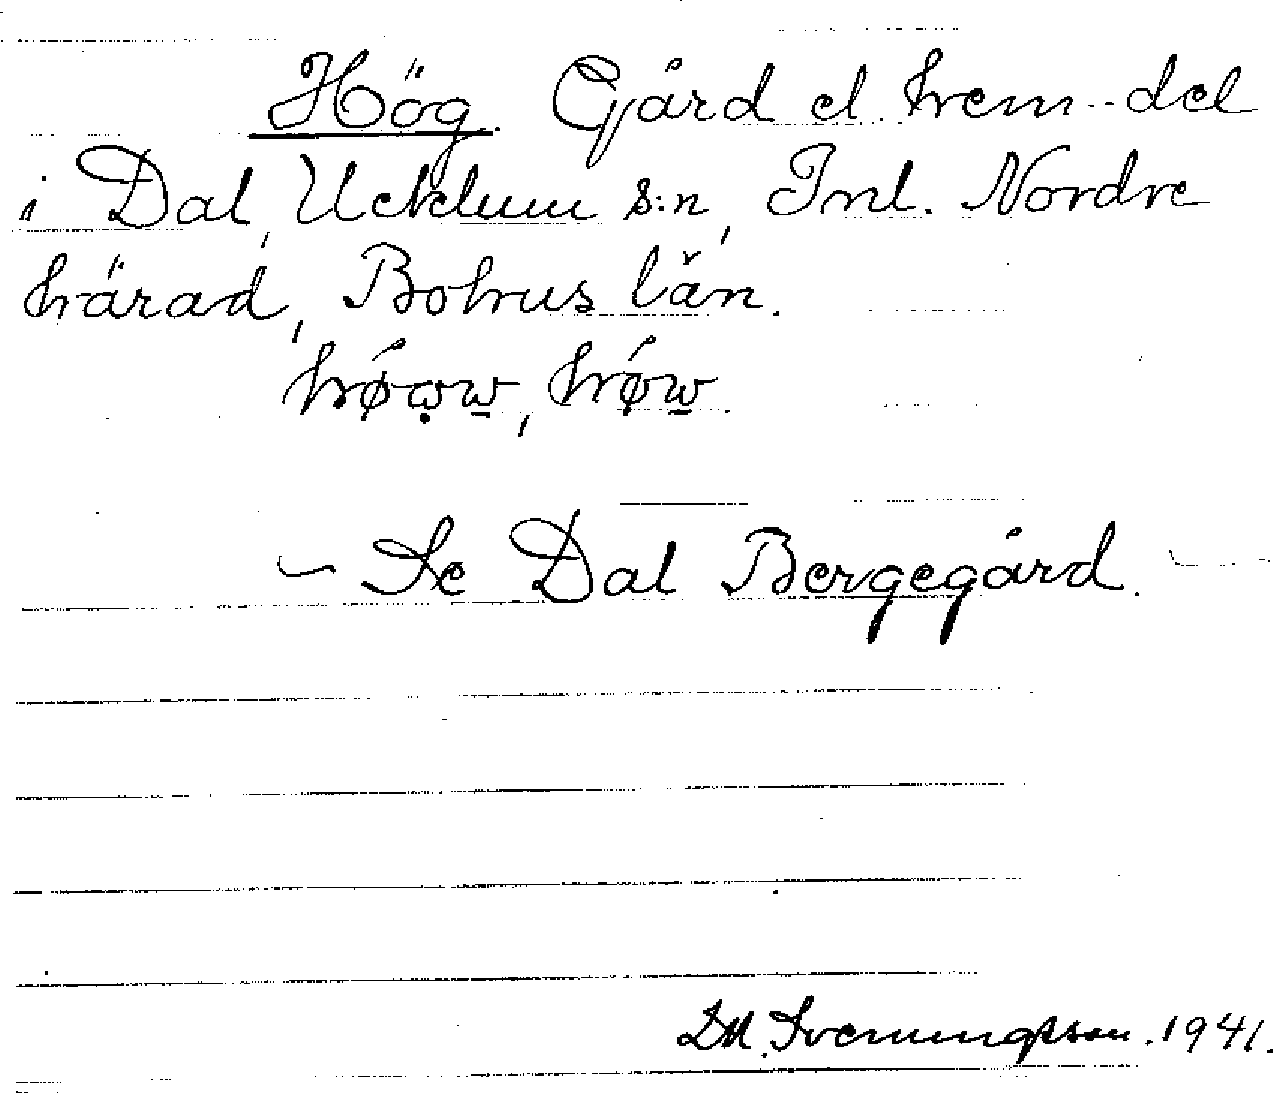 Hög. Gård el hem-del
i Dal, Ucklum s:n, Inl. Nordre
härad, Bohus län.
~ Se Dal Bergegård. ~
D.M. Svenungsson. 1941.